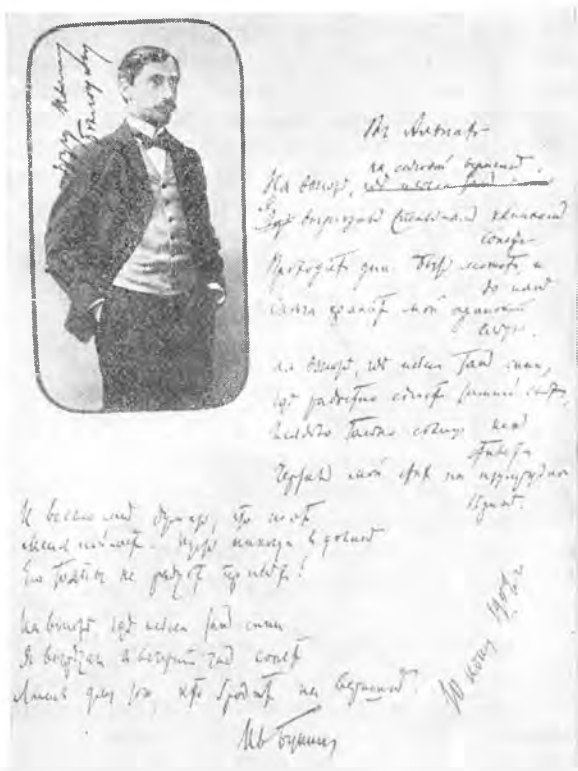 другу Ивану
Белоусову
Въ Альпахъ
на снѣговой вершинѣ,
На высотѣ, гдѣ небеса такъ сини
Я вырѣзалъ стальнымъ клинкомъ
сонетъ.
Проходятъ дни. Быть можетъ, и
до нынѣ
Снѣга хранятъ мой одинокій
слѣдъ.
На высотѣ, гдѣ небеса такъ сини,
Гдѣ радостно сіяетъ зимній свѣтъ,
Глядѣло только солнце, какъ
стилетъ
Чертилъ мой стихъ на изумрудной
льдинѣ.
И весело мнѣ думать, что поэтъ
Меня пойметъ. Пусть никогда въ долинѣ
Его толпы не радуетъ привѣтъ!
На высотѣ, гдѣ небеса такъ сини
Я вырѣзалъ въ вечерній часъ сонетъ
Лишь для того, кто бродитъ на вершинѣ.
Ив Бунинъ